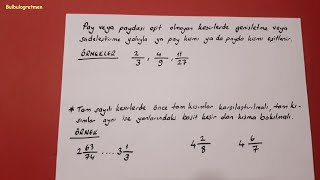 Bulbulogretmen
Pay veya paydası eşit olmayan kesirlerde genişletme veya
sadeleştirme yoluyla ya pay kısmı ya da payda kısmı eşitlenir.
ÖRNEKLER 2/3 , 4/9 , 11/27
* Tam sayılı kesirlerde önce tam kısımlar karşılaştırılmalı, tam kı-
sımlar aynı ise yanlarındaki basit kesir den kısma bakılmalı.
ÖRNEK
2 63/74 .... 3 1/3 4 2/8 4 6/7